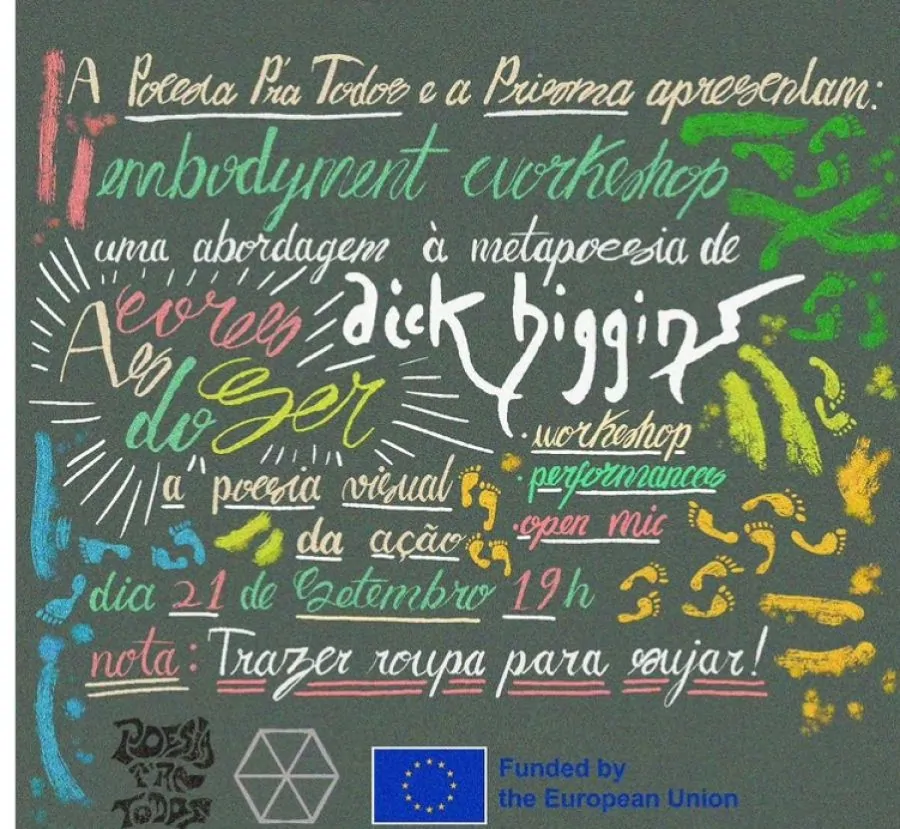 A Poesia P'ra Todos e a Prisma apresentam:
embodyment workshop
uma abordagem à metapoesia de
dick higgins
As cores
do Ser
a "poesia visual
da ação
· workshop
· performances
· open mic
dia 21 de Setembro 19h
nota: Trazer roupa para sujar!
POESIA
P'RA
TODOS
Funded by
the European Union